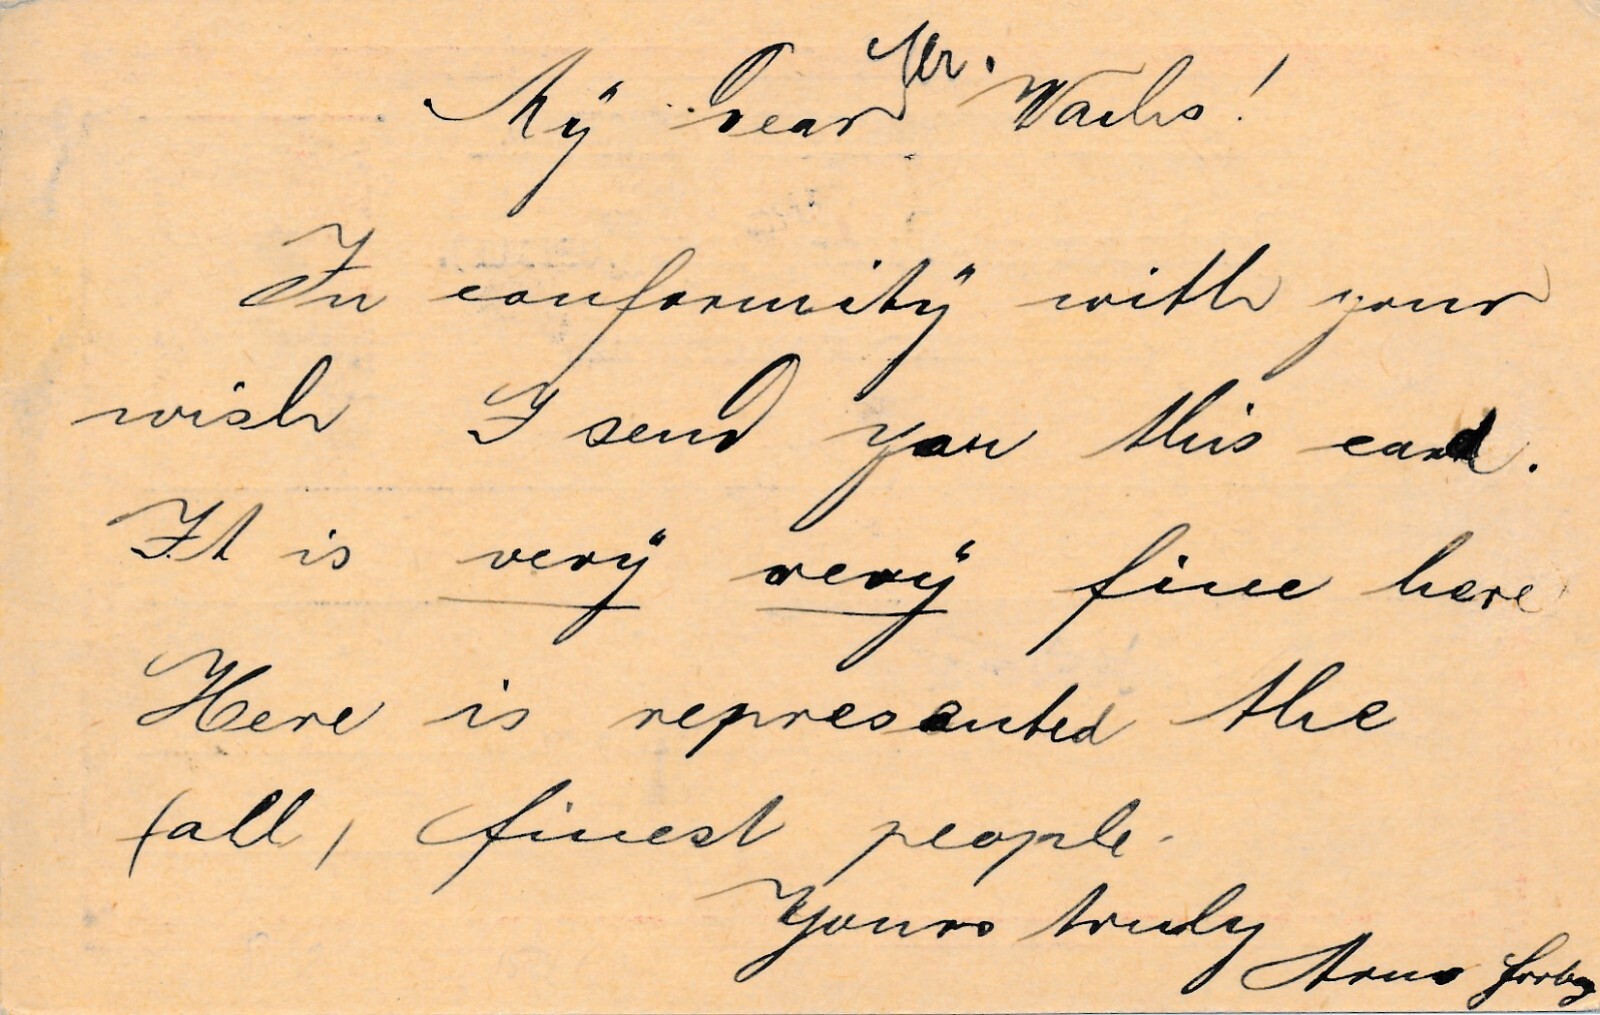 My dear Mr. Wachs!
In conformity with your
wish I send you this card.
It is very very fine here
Here is represented the
(all) finest people.
Yours truly
Arno